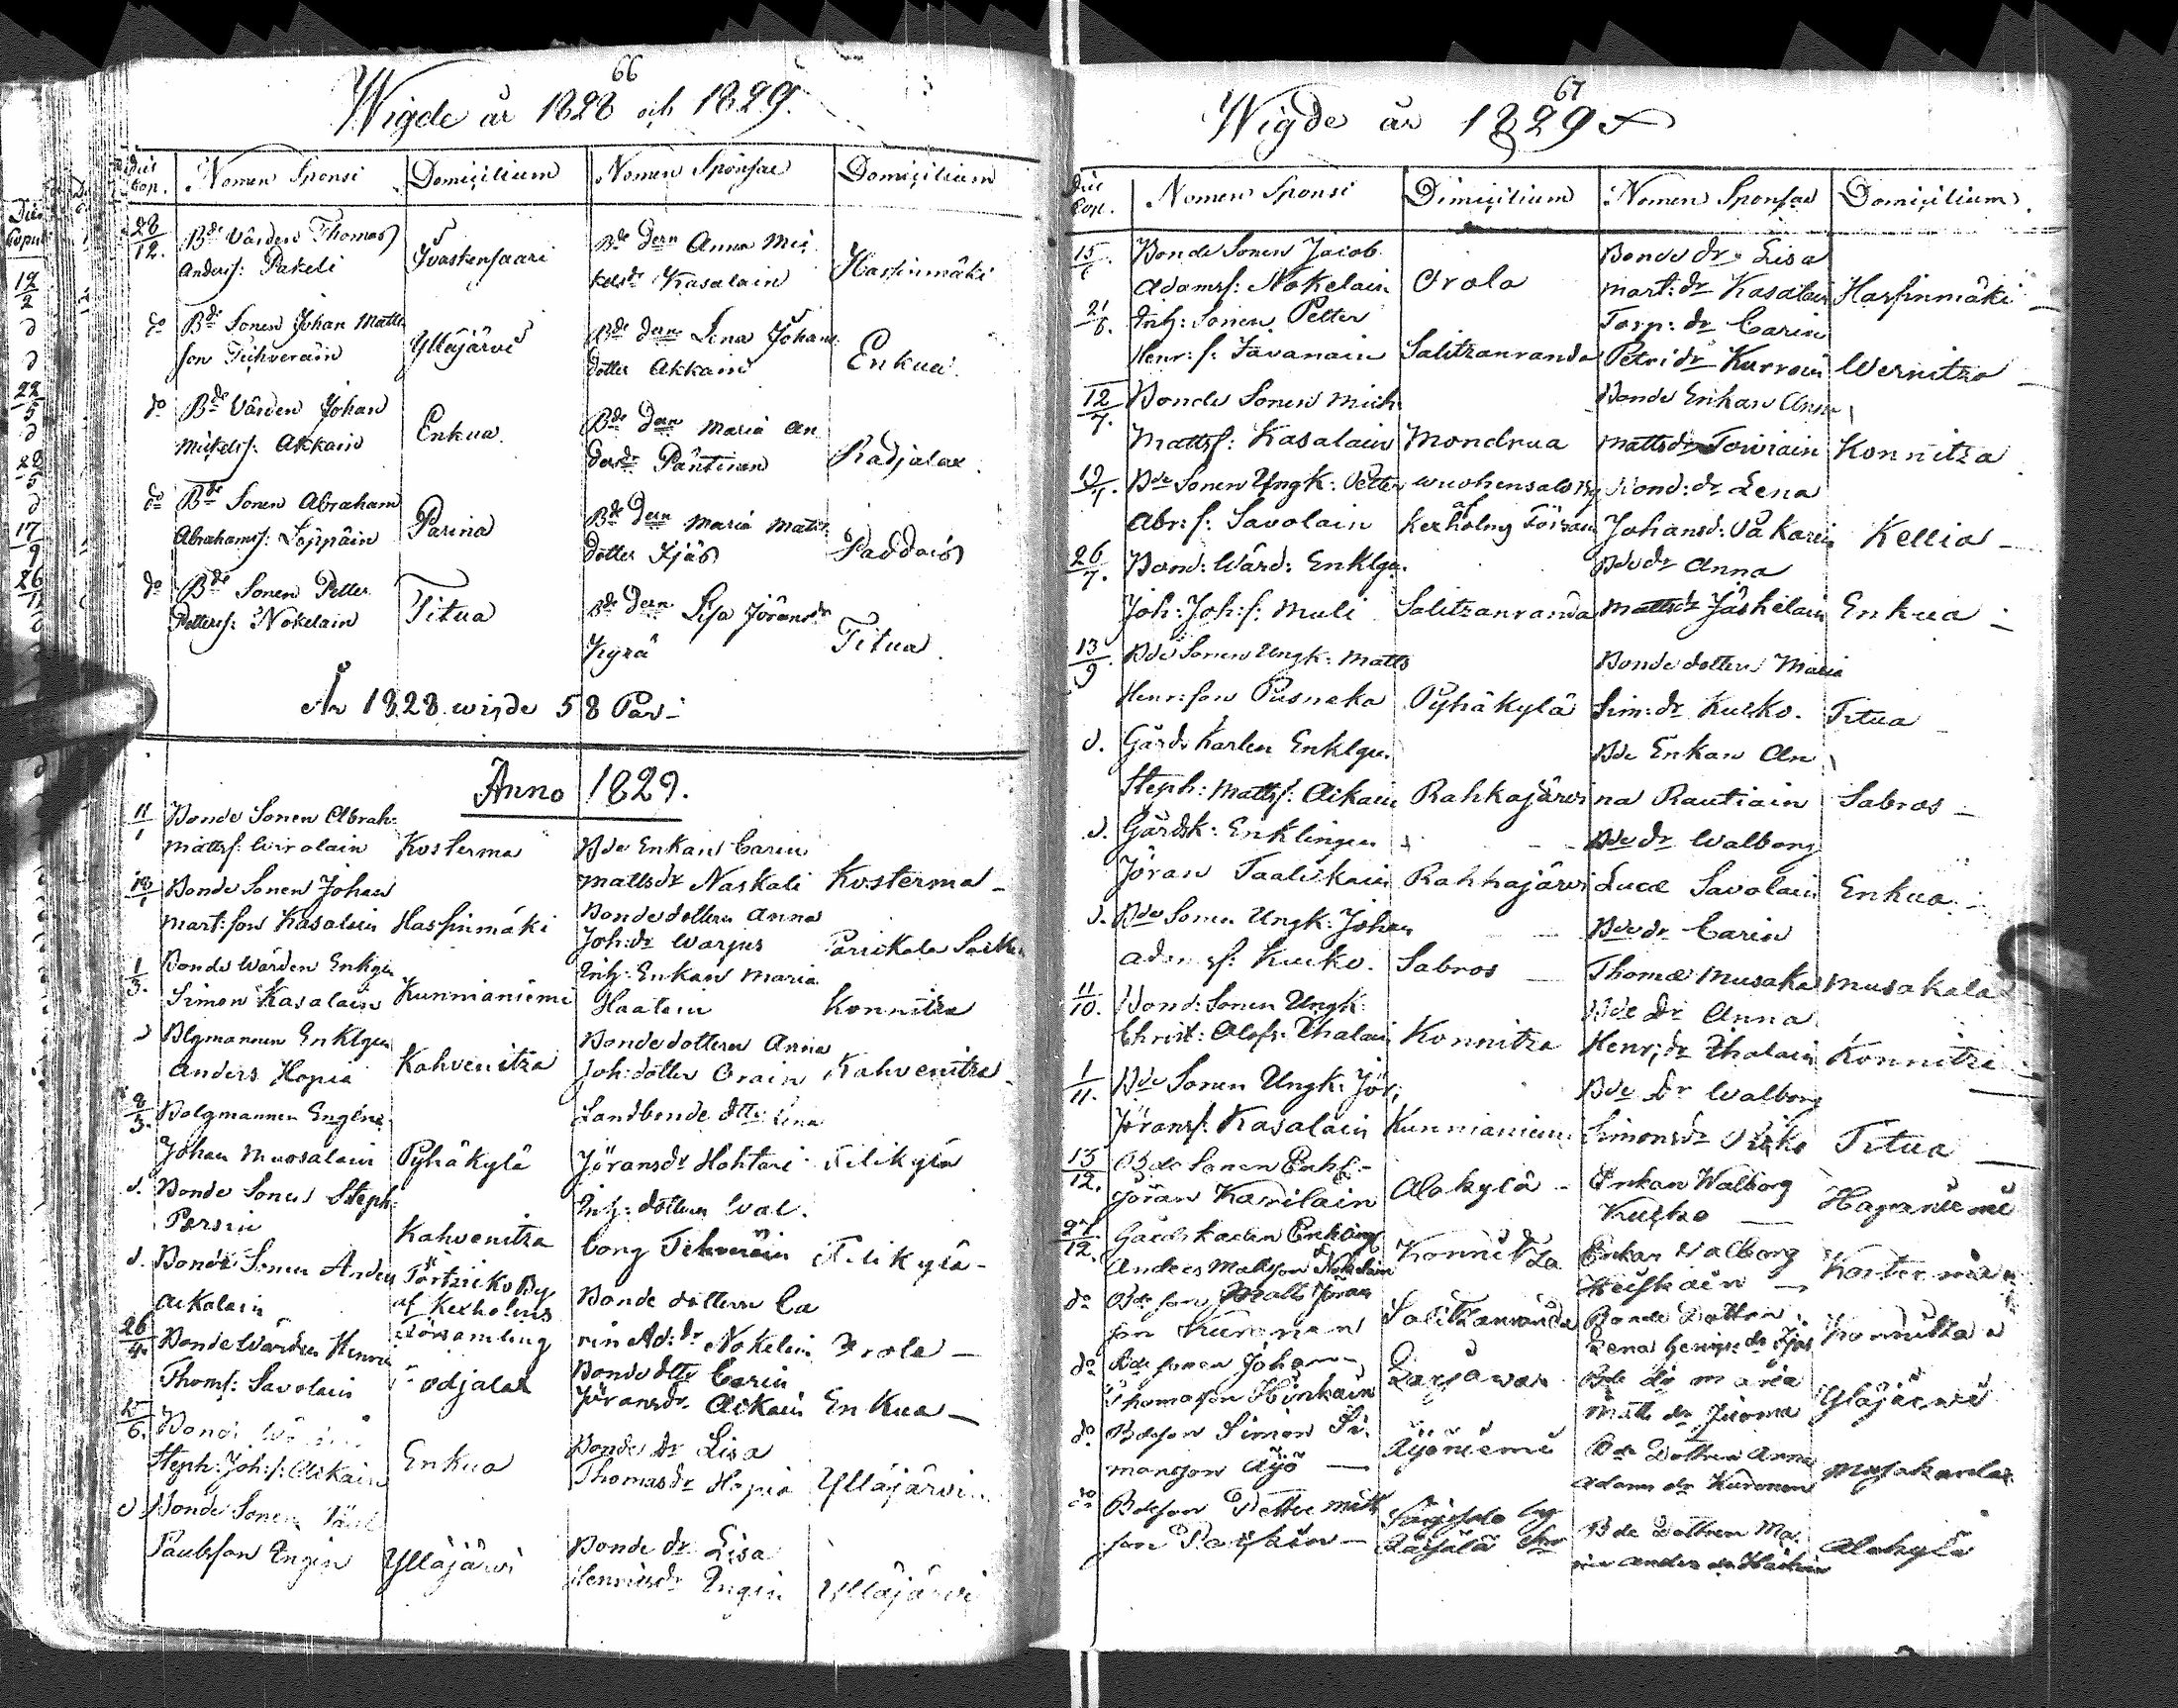 66
Wigde år 1828 och 1829.
Dies Cop. Nomen Sponsi Domicilium Nomen Sponsae Domicilium
28/12. Bde Vården Thomas
Anders: Pakeli Ivaskensaari Bde Dern Anna Mic
kelsdr Kasalain Hassinmäki
do Bde Sonen Johan Matts
son Tichverain Ylläjärvi Bde dern Lena Johans
dotter Akkain Enkua.
do Bde Vården Johan
Mickelsf: Akkain Enkua. Bde Dern Maria An
dersdr Päntinen Radjalax.
do Bde Sonen Abraham
Abrahamsf: Loppäin Parina Bde Dern Maria Matts
dotter Ijäs Saddois
do Bde Sonen Petter
Pettersf: Nokelain Titua Bde Dern Lisa Jöransdr
Kyrä Titua.
År 1828 wigde 58 Par.
Anno 1829.
11/1 Bonde Sonen Abrah:
Mattsf: Wirolain Kosterma Bde Enkan Carin
Mattsdr Naskali Kosterma
18/1 Bonde Sonen Johan
Mart:son Kasalain Hassinmäki Bonde dottern Anna
Joh:dr Warjus Parickala Socken
1/3. Bonde Wården Enkgn
Simon Kasalain Kunnianiemi Inh: Enkan Maria
Haatain Konnitza
d Blgmannen Enklgn
Anders Hopia Kahvenitza Bonde dottern Anna
Joh: dotter Orain Kahvenitza
8/3. Bolgmannen Englng
Johan Muosalain Pyhäkylä Landbonde dttr Lena
Jöransdr Hohtari Tilikylä
d. Bonde Sonen Steph:
Persin Kahvenitza Inh: dottern Wal.
borg Tichveräin Tilikylä
d. Bonde Sonen Anders
Aikalain by
af Kexholms
Församling Bonde dottern Ca
rin Ad:dr Nokelain Orola
26/4. Bonde Wården Henric
Thoms: Savolain Radjalax Bonde dttr Carin
Jöransdr Aikain Enkua
Bonde Wården
Steph: Joh:s: Aikain Enkua Bonde dr Lisa
Thomasdr Hopia Ylläjärvi
d Bonde Sonen
Paulsson Ingin Ylläjärvi Bonde dr Lisa
Henricsdr Ingin Ylläjärvi
67
Wigde år 1829
Dies Cop. Nomen Sponsi Dimicilium Nomen Sponsae Domicilium
15/6 Bonde Sonen Jacob
Adamsf: Nokelain Orola Bonde dr Lisa
Mart: dr Kasalain Hassinmäki
21/6. Inh: Sonen Petter
Henr: s: Javanain Salitzanranda Torp: dr Carin
Petri dr Kurroin Wernitza
12/7. Bonde Sonen Mich:
Mattsf: Kasalain Mondrua Bonde Enkan Anna
Mattsdr Toiviain Konnitza
Bde Sonen Ungk: Petter
Abr: s: Savolain Wuohensalo By
af Kexholms Försam Bond: dr Lena
Johansd: Pakarin Kellio
26/7. Bond: Wård: Enklgn.
Joh: Joh: s: Muli Salitzanranda Bde dr Anna
Mattsdr Jäskelain Enkua
13/9. Bde Sonen Ungk: Matts
Henr:son Pusneka Pyhäkylä Bonde dottern Maria
Sim: dr Kucko. Titua
d. Gårds Karlen Enklgn.
Steph: Mattsf: Aikain Rahkajärvi Bde Enkan An
na Rautiain Sabros
d. Gårdsk: Enklingen
Jöran Taaliskain Rahkajärvi Bde dr Walborg
Lucae Savolain Enkua
d. Bde Sonen Ungk: Johan
Adamsf: Kucko. Sabros Bde dr Carin
Thomae Musaka Musakala
11/10. Bond: Sonen Ungk:
Christ: Olofs: Ihalain Konnitza Bde Dr Anna
Henr: dr Ihalain Konnitza
1/11. Bde Sonen Ungk: Jör:
Jöransf: Kasalain Kunnianiemi Bde Dr Walborg
Simonsdr Titua
13/12. Bde Sonen Enkl:
Jöran Karilain Alakylä Enkan Walborg
Kucko Hapaniemi
27/12. Gårdskarlen Enkling
Anders Mattson Nokelain Konnitza Enkan Walborg
Heiskain Kosterma
do Bde son Matts Jöran
son Kuronen Salitzanranda Bonde Dottern
Lena Henrics dr Ijäs Konnitza
do Bde Sonen Johan
Thomasson Hinkain Bde dr Maria
Matts dr Juoma Ylläjärvi
do Bdeson Simon Si
monsson Äyö Äyöniemi Bde Dottren Anna
Adams dr Kuronen
do Bdeson Petter Matt
son by
Räisälä Bde Dottren Ma
ria Anders dr Alakylä